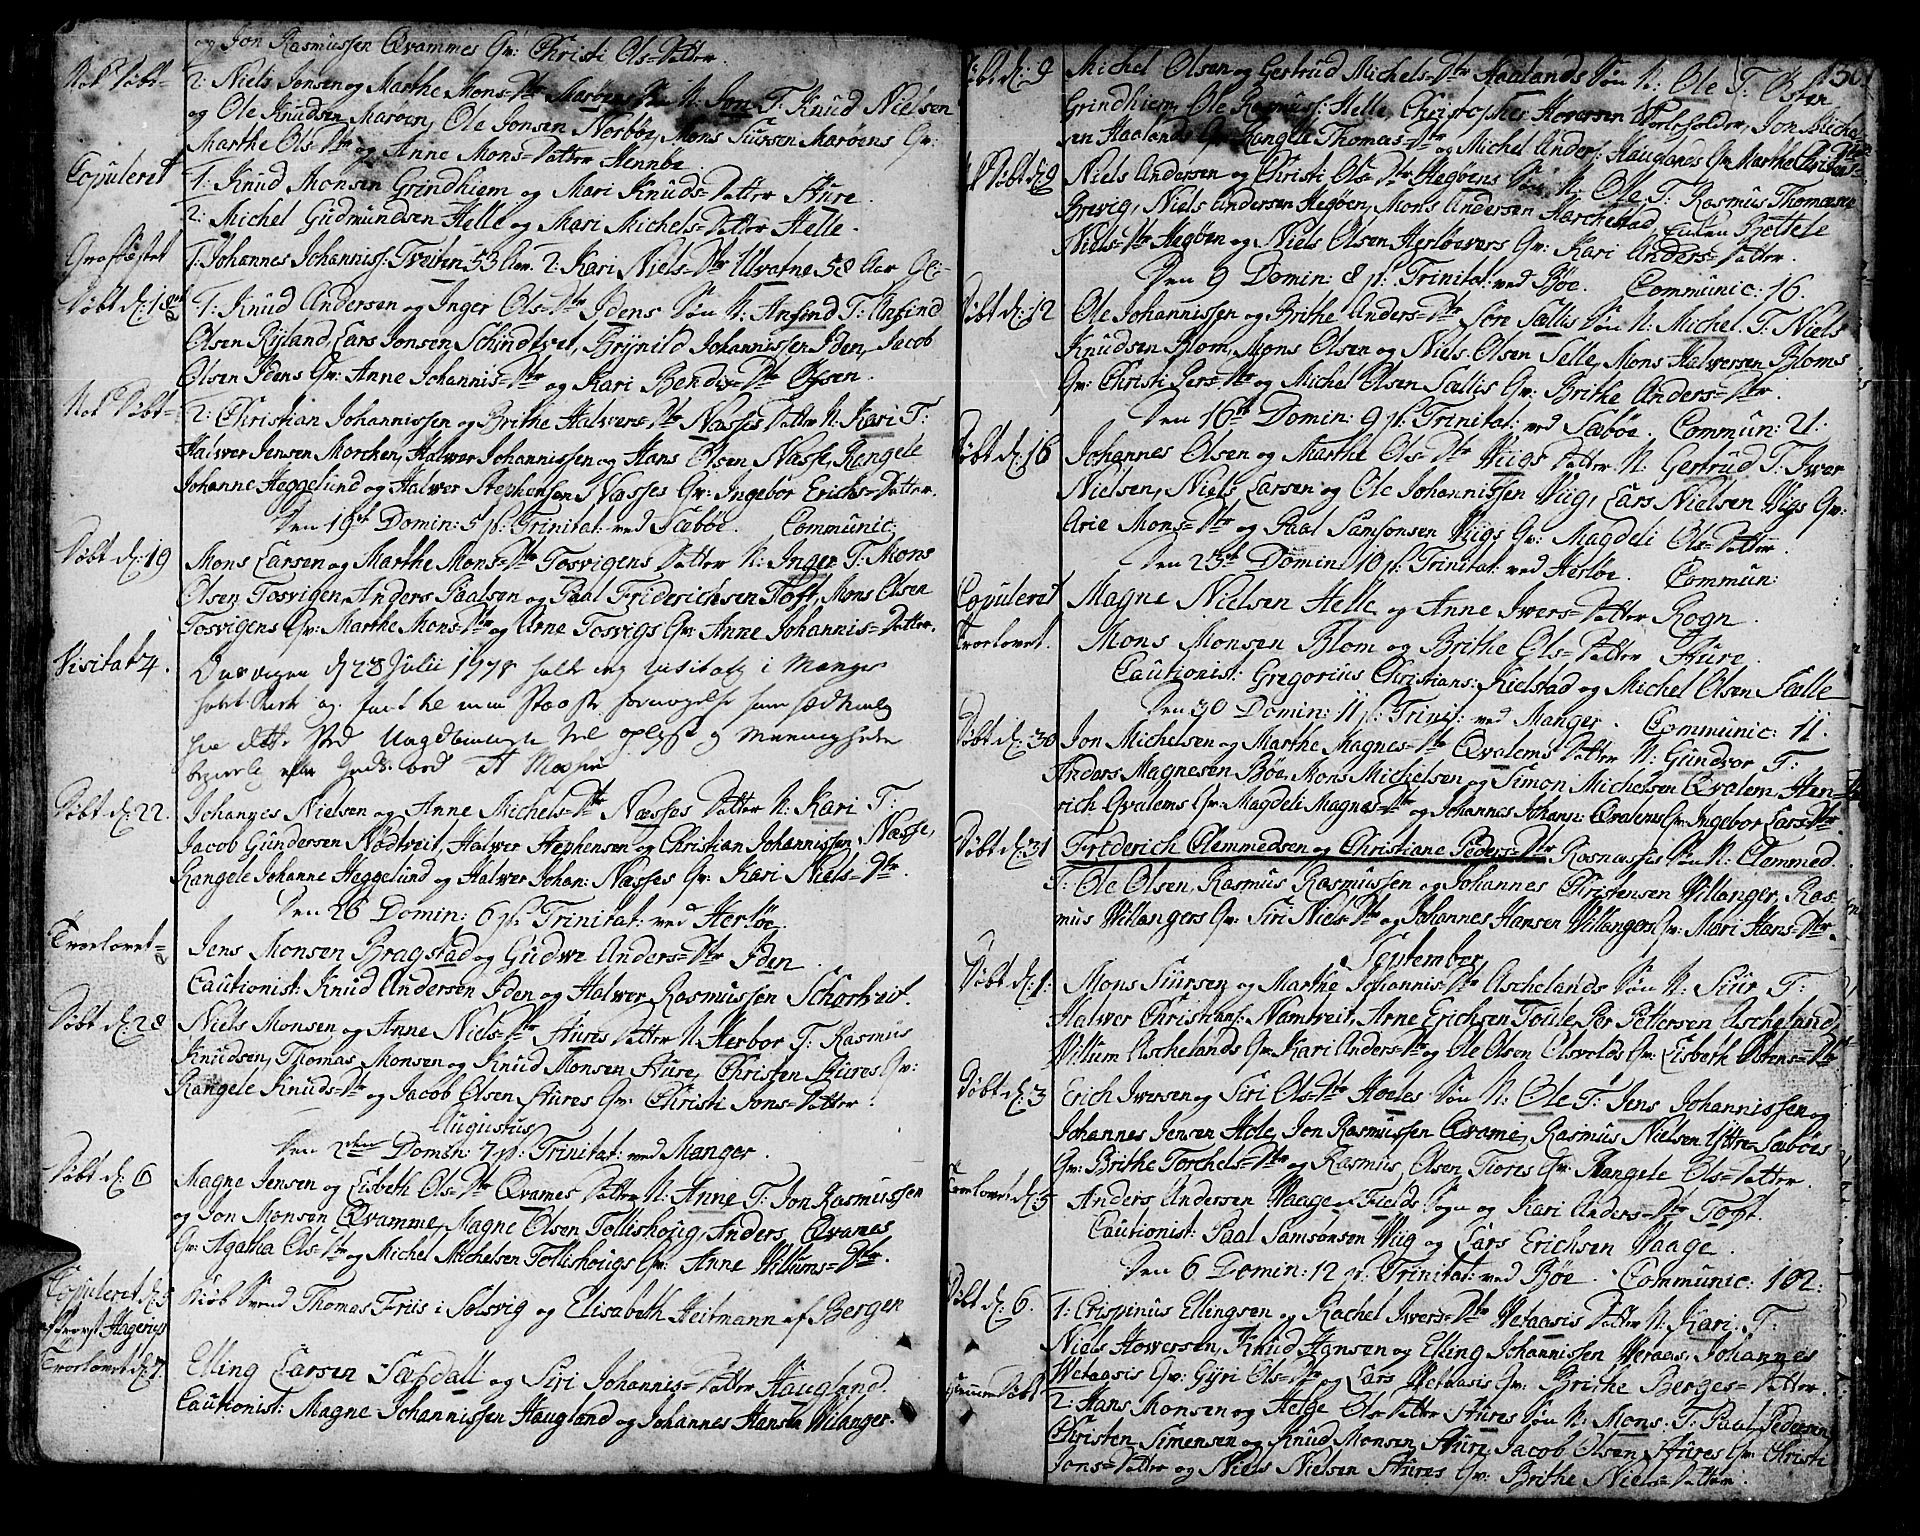 og Jon Rasmussen Qvammes Qv: Christi Ols=Datter.
2: Niels Jonsen og Marthe Mons=Dtr Marøens Søn N: Jon T: Knud Nielsen
og Ole Knudsen Marøen, Ole Jonsen Norbøe, Mons Siursen Marøens Qv:
Marthe Ols=Dtr og Anne Mons=Datter Hennøe
Copuleret
1: Knud Monsen Grindhiem og Mari Knuds=Datter Sture.
2: Michel Gudmundsen Helle og Mari Michels=Datter Helle.
1: Johannes Johannis: Tveiten 53 Aar. 2: Kari Niels=Dtr Uvatne 58 Aar
Døbt d: 18de
1: Knud Andersen og Inger Ols=Dtr Idens Søn N: Anfind T: Anfind
Olsen Ryland, Lars Jonsen Schindtvet, Brynild Johannissen Iden, Jacob
Olsen Idens Qv: Anne Johannis=Dtr og Kari Bendix=Dtr
2: Christian Johannissen og Brithe Halvers=Dtr Næsses Datter N: Kari T:
Halver Jensen Morchen, Halver Johannissen og Hans Olsen Næsse, Rengele
Johanne Heggelund og Halver Stephensen Næsses Qv: Ingebor Erichs=Datter.
Den 19de Domin: 5 p: Trinitat: ved Sæbøe. Communic:
Døbt d: 19
Mons Larsen og Marthe Mons=Dtr Tosvigens Datter N: Inger T: Mons
Olsen Tosvigen, Anders Paalsen og Paal Friderichsen Toft, Mons Olsen
Tosvigens Qv: Marthe Mons=Dtr og Arne Tosvigs Qv: Anne Johannis=Datter.
Visitatz.
d 28 Julii 1778 holt jeg visitatz i Manger
Døbt d: 22.
Johannes Nielsen og Anne Michels=Dtr Næsses Datter N: Kari T:
Jacob Gundersen Nødtveit, Halver Stephensen og Christian Johannissen Næsse,
Rangele Johanne Heggelund og Halver Johan: Næsses Qv: Kari Niels=Dtr.
Den 26 Domin: 6 p: Trinitat: ved Herløe.
Trorlovet
Jens Monsen Bragstad og Gudve Anders=Dtr Iden.
Cautionist: Knud Andersen Iden og Halver Rasmussen Schortveit.
Døbt d: 28
Niels Monsen og Anne Niels=Dtr Stures Datter N: Herbor T: Rasmus
Knudsen, Thomas Monsen og Knud Monsen Sture, Christen Stures Qv:
Rangele Knuds=Dtr og Jacob Olsen Stures Qv: Christi Jons=Datter.
Augustus
Den 2den Domin: 7 p: Trinitat: ved Manger.
Døbt d: 6
Magne Jensen og Lisbeth Ols=Dtr Qvames Datter N: Anne T: Jon Rasmussen
og Jon Monsen Qvamme, Magne Olsen Tolleshoug, Anders Qvames
Qv: Agatha Ols=Dtr og Michel Michelsen Tolleshougs Qv: Anne Villums=Dtr.
Copuleret d: 5
af Provst Hagerup
Kiøb Svend Thomas Friis i Solsvig og Elisabeth Heitmann af Bergen
Trorlovet d: 7.
Elling Larsen Sæfdall og Siri Johannis=Datter Haugland.
Cautionist: Magne Johannissen Haugland og Johannes Hansen Vilanger.
130
Døbt d: 9
Michel Olsen og Gertrud Michels=Dtr Haalands Søn N: Ole T: Østen
Grindhiem, Ole Rasmus: Helle, Christopher Hoversen Vorleholder, Jon Miche=
sen Haalands Qv: Rangele Thomas=Dtr og Michel Anders: Hauglands Qv: Marthe
Niels Andersen og Christi Ols=Dtr Hegøens Søn N: Ole T: Rasmus Thomæsen
Brevig, Niels Andersen Hegøen, Mons Andersen Marchestad,
Niels=Dtr Hegøen og Niels Olsen Herløevers Qv: Kari Anders=Datter.
Den 9 Domin: 8 p: Trinitat: ved Bøe. Communic: 16.
Døbt d: 12
Ole Johannissen og Brithe Anders=Dtr Sore Sællis Søn N: Michel T: Niels
Knudsen Blom, Mons Olsen og Niels Olsen Selle, Mons Halversen Bloms
Qv: Christi Pers=Dtr og Michel Olsen Sællis Qv: Brithe Anders=Dtr.
Den 16de Domin: 9 p: Trinitat: ved Sæbøe. Commun: 21.
Døbt d: 16
Johannes Olsen og Marthe Ols=Dtr Viigs Datter N: Gertrud T: Iver
Nielsen, Niels Larsen og Ole Johannissen Viig, Lars Nielsen Viigs Qv:
Arie Mons=Dtr og Paal Samsonsen Viigs Qv: Magdeli Ols=Datter.
Den 23de Domin: 10 p: Trinitat: ved Herløe. Commun:
Copuleret
Magne Nielsen Helle og Anne Ivers=Datter Rogn.
Trorlovet.
Mons Monsen Blom og Brithe Ols=Datter Sture.
Cautionist: Gregorius Christians: Kielstad og Michel Olsen Sælle
Den 30 Domin: 11 p: Trinit: ved Manger. Communic: 11.
Døbt d: 30
Jon Michelsen og Marthe Magnes=Dtr Qvalems Datter N: Gundvor T:
Anders Magnesen Bøe, Mons Michelsen og Simon Michelsen Qvalem, Hen=
rich Qvalems Qv: Magdeli Magnes=Dtr og Johannes Johann: Qvalems Qv: Ingebor Lars=Dtr.
Døbt d: 31
Friderich Clemmedsen og Christiane Peders=Dtr Rosnæssis Søn N: Clemmed.
T: Ole Olsen, Rasmus Rasmussen og Johannes Christensen Villanger, Ras=
mus Villangers Qv: Siri Niels=Dtr og Johannes Hansen Villangers Qv: Mari Hans=Dtr.
September
Døbt d: 1.
Mons Siursen og Marthe Johannis=Dtr Aschelands Søn N: Siur T:
Halver Christians: Namtveit, Arne Erichsen Toule, Per Pettersen Ascheland,
Villum Aschelands Qv: Kari Anders=Dtr og Ole Olsen Olsvolds Qv: Lisbeth Østens=Dtr
Døbt d: 3
Erich Iversen og Siri Ols=Dtr Hoeles Søn N: Ole T: Jens Johannissen og
Johannes Jensen Hole, Jon Rasmussen Qvame, Rasmus Nielsen Yttre=Sæbøes
Qv: Brithe Torchels=Dtr og Rasmus Olsen Tiores Qv: Rangele Ols=Datter.
Trorlovet d: 5
Anders Andersen Vaage af Fields Sogn og Kari Anders=Dtr Toft.
Cautionist: Paal Samsonsen Viig og Lars Erichsen Vaage.
Den 6 Domin: 12 p: Trinitat: ved Bøe. Communic: 102:
Døbt d: 6.
1: Crispinus Ellingsen og Rachel Ivers=Dtr Vetaasis Datter N: Kari. T:
Niels Hoversen, Knud Hansen og Elling Johannissen Veraas, Johannes
Vetaasis Qv: Gyri Ols=Dtr og Lars Vetaasis Qv: Brithe Berges=Datter.
2: Hans Monsen og Helge Ols=Datter Stures Søn N: Mons. T: Paal Pedersen,
Christen Simensen og Knud Monsen Sture, Jacob Olsen Stures Qv: Christi
Jons=Datter og Niels Nielsen Stures Qv: Brithe Niels=Datter.